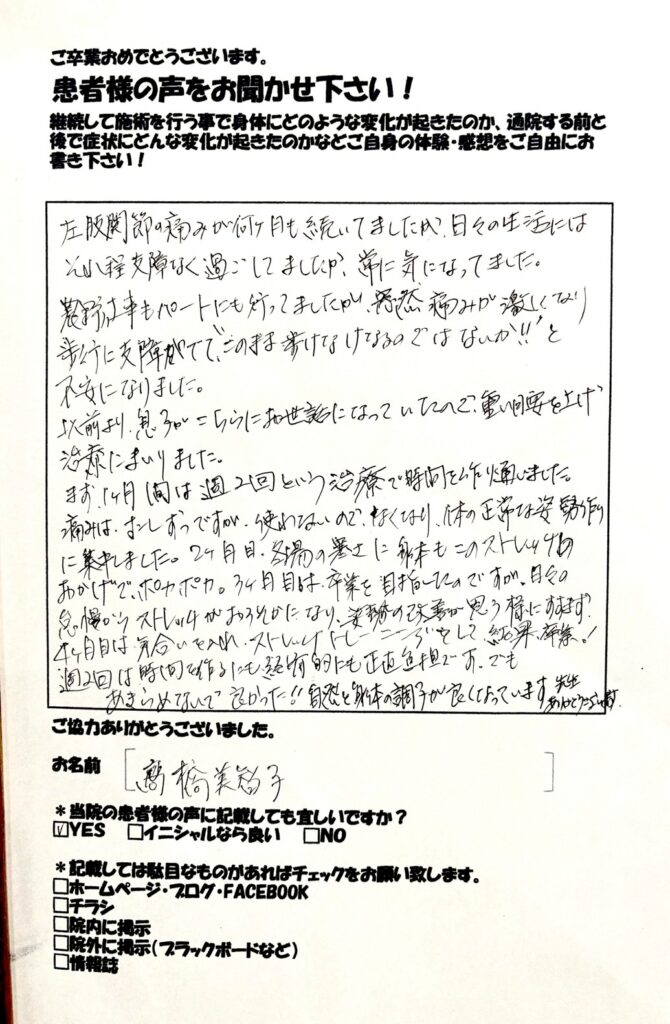 ご卒業おめでとうございます。
患者様の声をお聞かせ下さい！
継続して施術を行う事で身体にどのような変化が起きたのか、通院する前と
後で症状にどんな変化が起きたのかなどご自身の体験・感想をご自由にお
書き下さい！
左股関節の痛みが何ヶ月も続いてましたが、日々の生活には
それ程支障なく過ごしてましたが、常に気になってました。
農野仕事もパートにも行ってましたが、突然痛みが激しくなり
歩行に支障がでて、"このまま歩けなくなるのではないか!!"と
不安になりました。
以前より、息子がこちらにお世話になっていたので、重い腰を上げ
治療にまいりました。
まず、1ヶ月間は週2回という治療で時間を作り通いました。
痛みは、少しずつですが、使わないので、なくなり、体の正常な姿勢作り
に集中しました。2ヶ月目、冬場の寒さに身体もこのストレッチの
おかげで、ポカポカ。3ヶ月目は、卒業を目指したのですが、日々の
怠慢からストレッチがおろそかになり、姿勢の改善が思う様にすすまず、
4ヶ月目は、気合いを入れ、ストレッチ、トレーニングをして、結果、卒業。！
週2回は時間を作るにも経済的にも正直負担です。でも
あきらめないで良かった!!自然と身体の調子が良くなっています 先生
ありがとうございます
ご協力ありがとうございました。
お名前 [髙橋美智子]
＊当院の患者様の声に記載しても宜しいですか？
☑YES □イニシャルなら良い □NO
＊記載しては駄目なものがあればチェックをお願い致します。
□ホームページ・ブログ・FACEBOOK
□チラシ
□院内に掲示
□院外に掲示（ブラックボードなど）
□情報誌